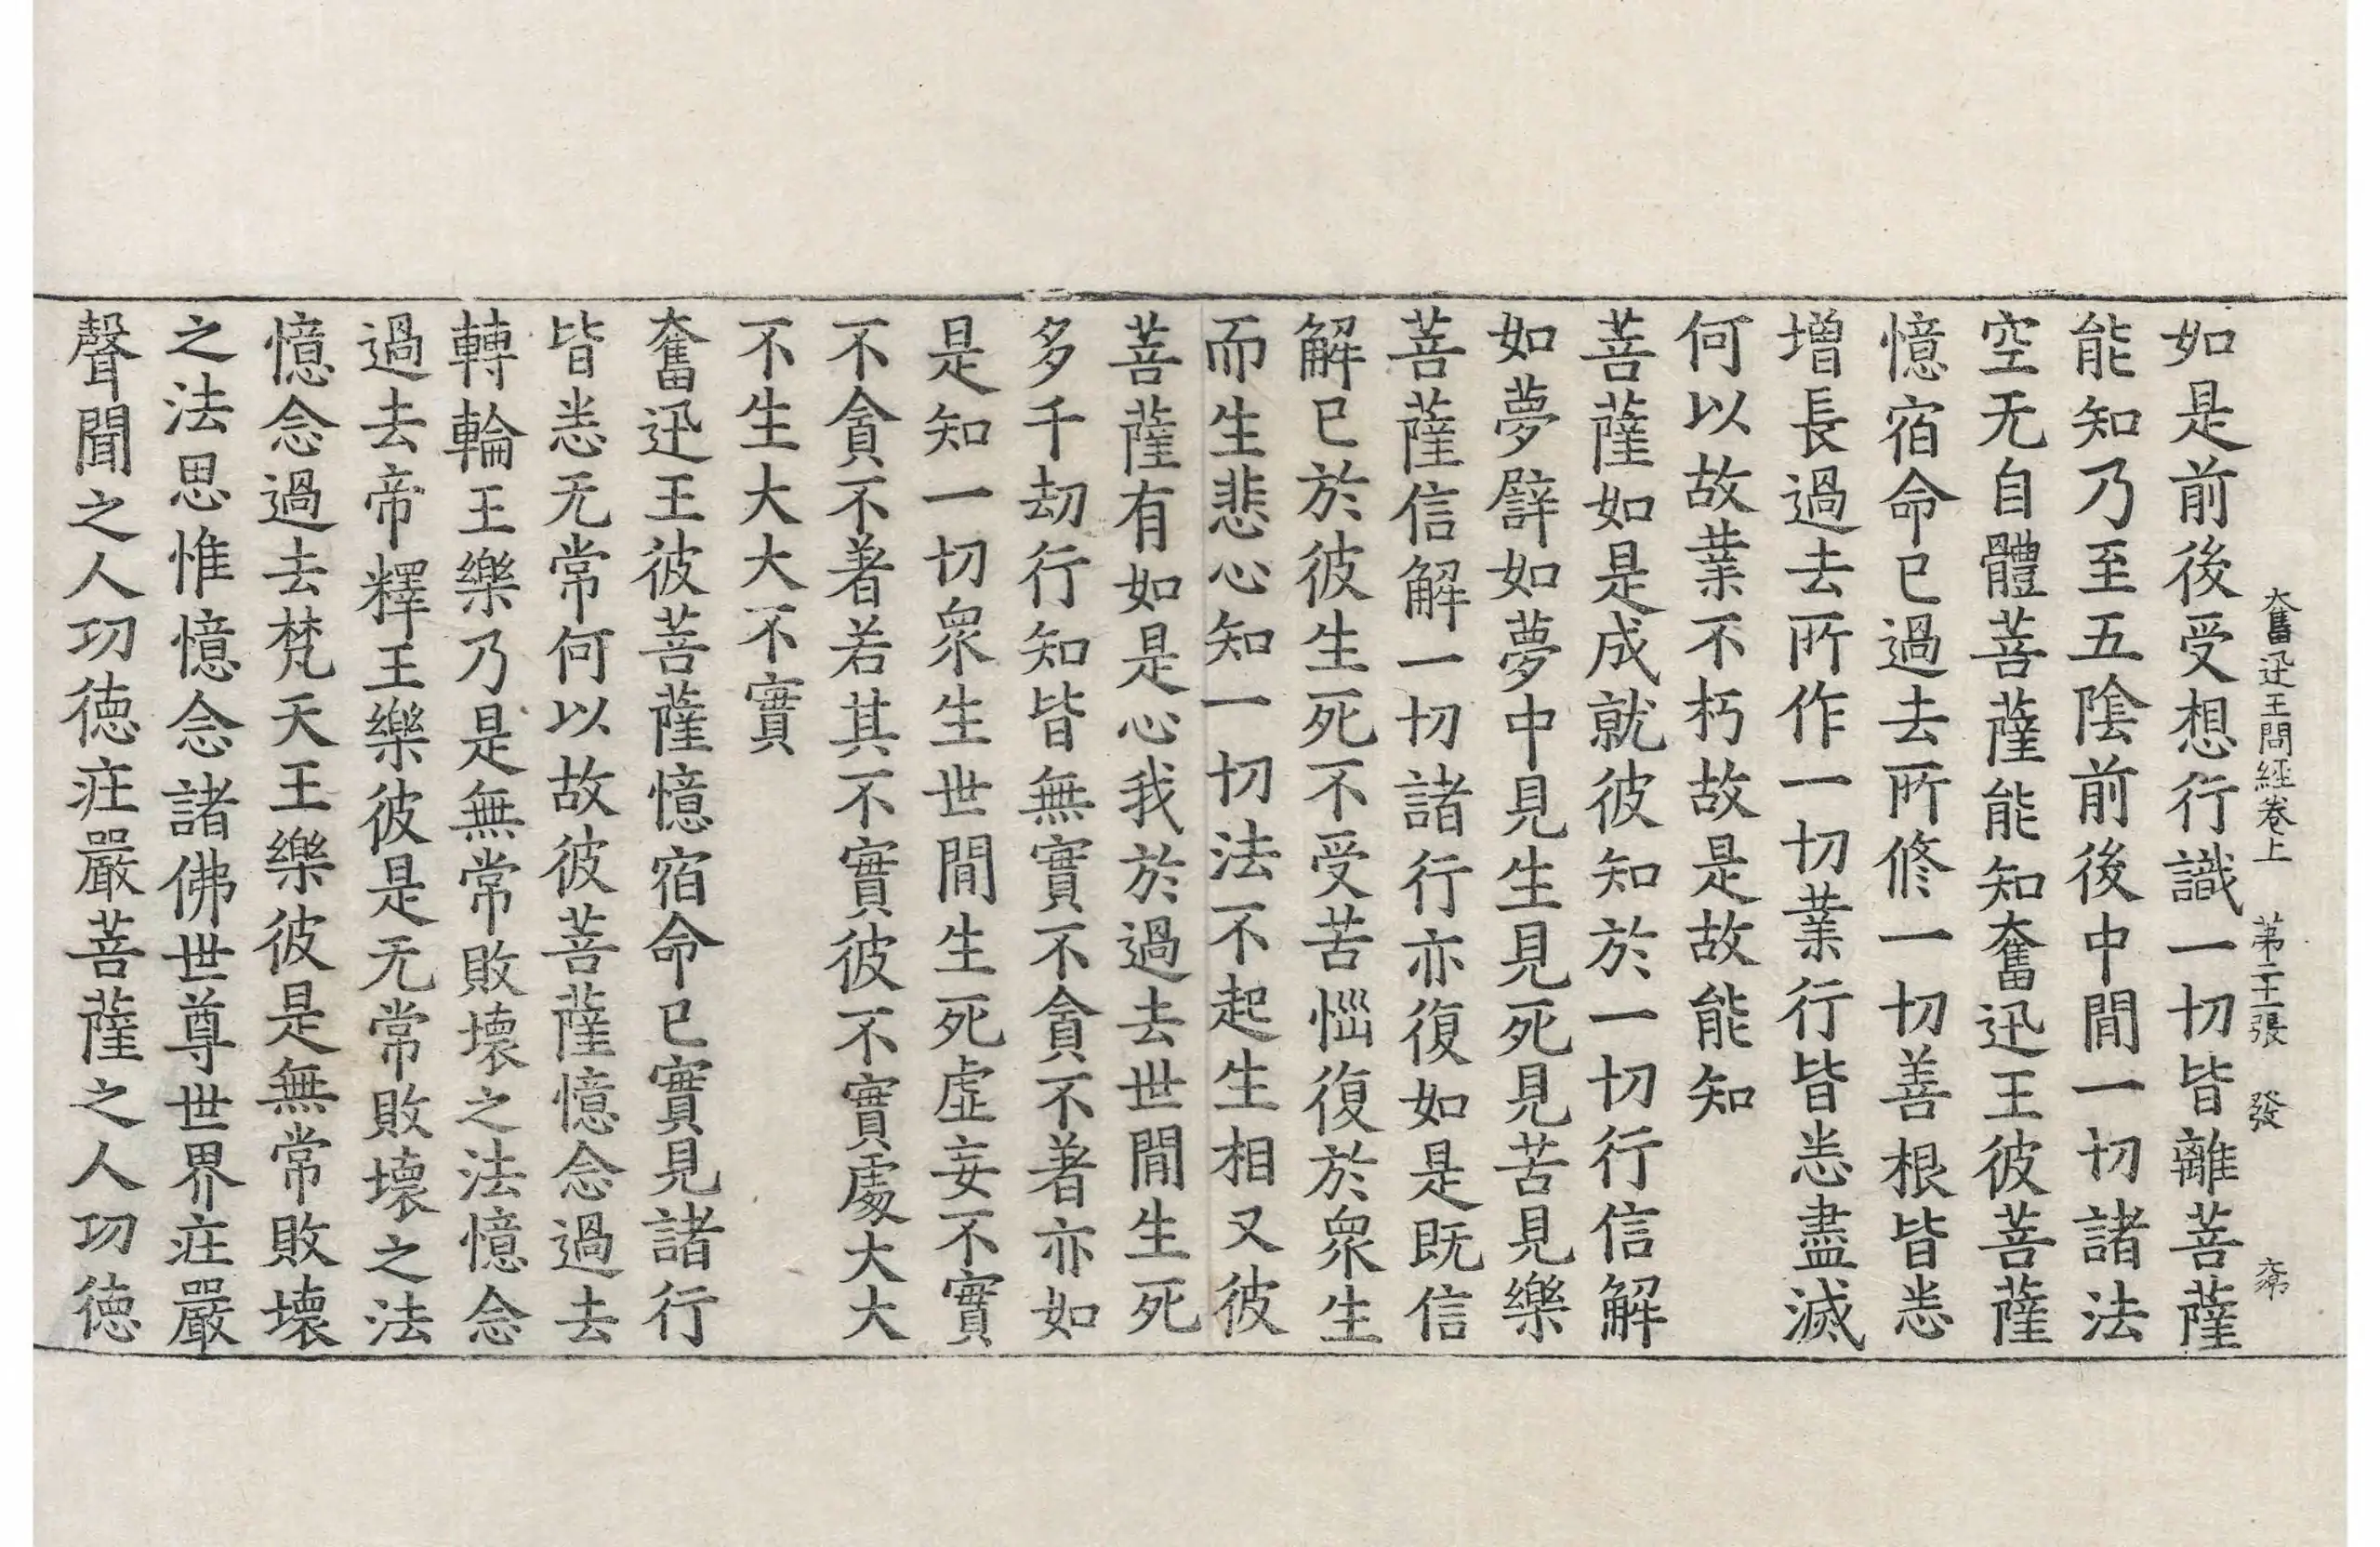 奮迅王問經卷上 第二十張 發
如是前後受想行識一切皆離菩薩
能知乃至五陰前後中間一切諸法
空无自體菩薩能知奮迅王彼菩薩
憶宿命已過去所修一切善根皆悉
增長過去所作一切業行皆悉盡滅
何以故業不朽故是故能知
菩薩如是成就彼知於一切行信解
如夢辟如夢中見生見死見苦見樂
菩薩信解一切諸行亦復如是既信
解已於彼生死不受苦惱復於眾生
而生悲心知一切法不起生相又彼
菩薩有如是心我於過去世間生死
多千劫行知皆無實不貪不著亦如
是知一切眾生世間生死虛妄不實
不貪不著若其不實彼不實處大大
不生大大不實
奮迅王彼菩薩憶宿命已實見諸行
皆悉无常何以故彼菩薩憶念過去
轉輪王樂乃是無常敗壞之法憶念
過去帝釋王樂彼是无常敗壞之法
憶念過去梵天王樂彼是無常敗壞
之法思惟憶念諸佛世尊世界莊嚴
聲聞之人功德莊嚴菩薩之人功德